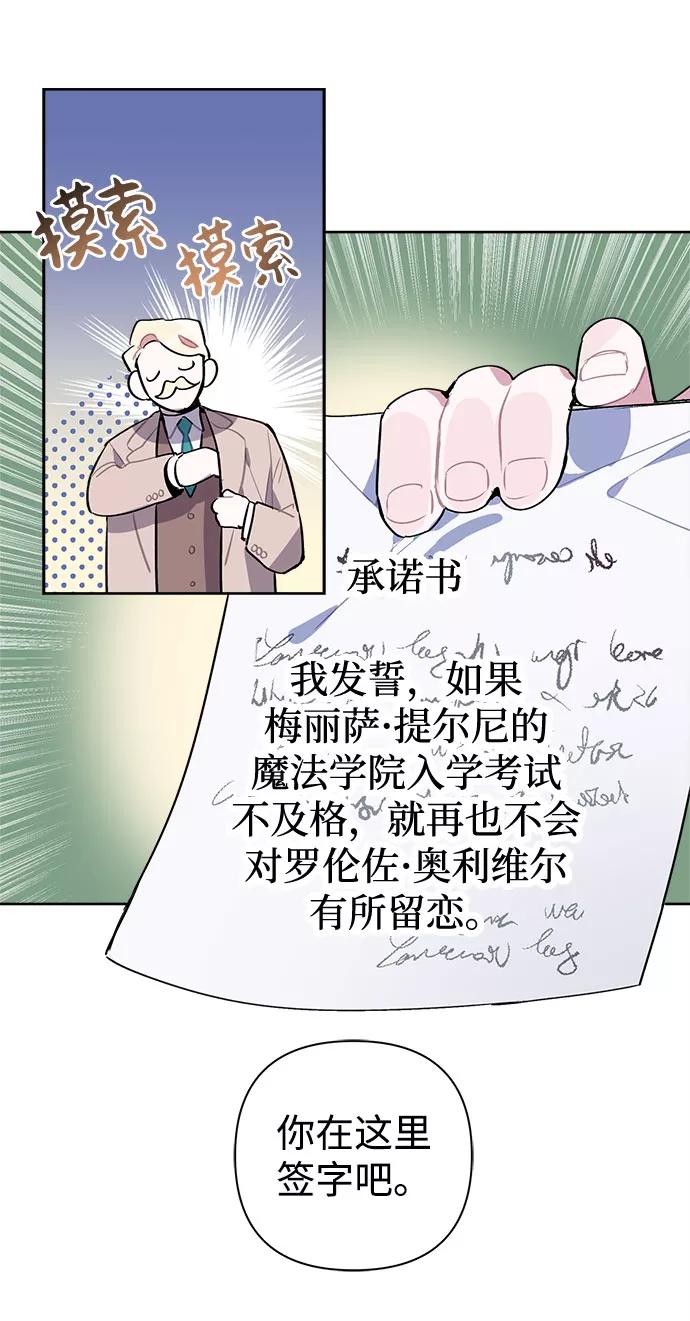 摸索
摸索
承诺书
我发誓，如果
梅丽萨·提尔尼的
魔法学院入学考试
不及格，就再也不会
对罗伦佐·奥利维尔
有所留恋。
你在这里
签字吧。